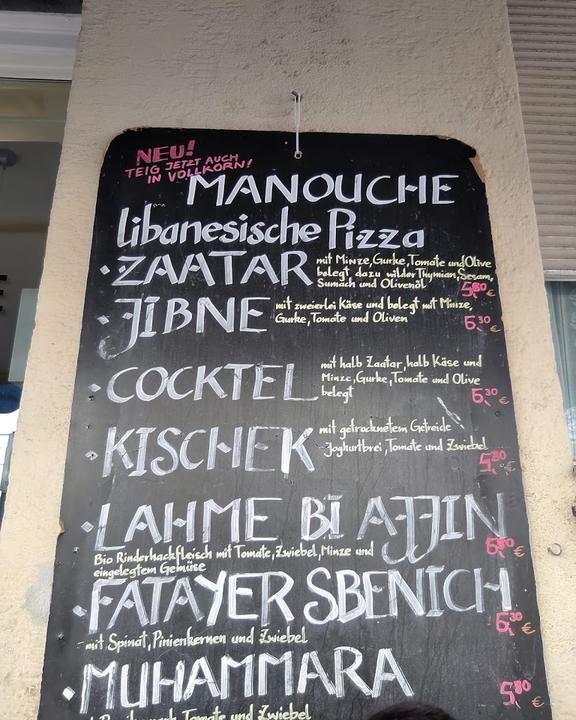 NEU!
TEIG JETZT AUCH
IN VOLLKORN!
MANOUCHE
libanesische Pizza
·ZAATAR
mit Minze, Gurke, Tomate und Olive
belegt dazu wilder Thymian, Sesam,
Sumach und Olivenöl
5,80 €
·JIBNE
mit zweierlei Käse und belegt mit Minze,
Gurke, Tomate und Oliven
6,30 €
·COCKTEL
mit halb Zaatar, halb Käse und
Minze, Gurke, Tomate und Olive
belegt
6,30 €
·KISCHEK
mit getrocknetem Getreide
-Joghurtbrei, Tomate und Zwiebel
5,80 €
·LAHME BI AJJIN
Bio Rinderhackfleisch mit Tomate, Zwiebel, Minze und
eingelegtem Gemüse
€
·FATAYER SBENICH
-mit Spinat, Pinienkernen und Zwiebel
6,30 €
·MUHAMMARA
5,80 €
Tomate und Zwiebel